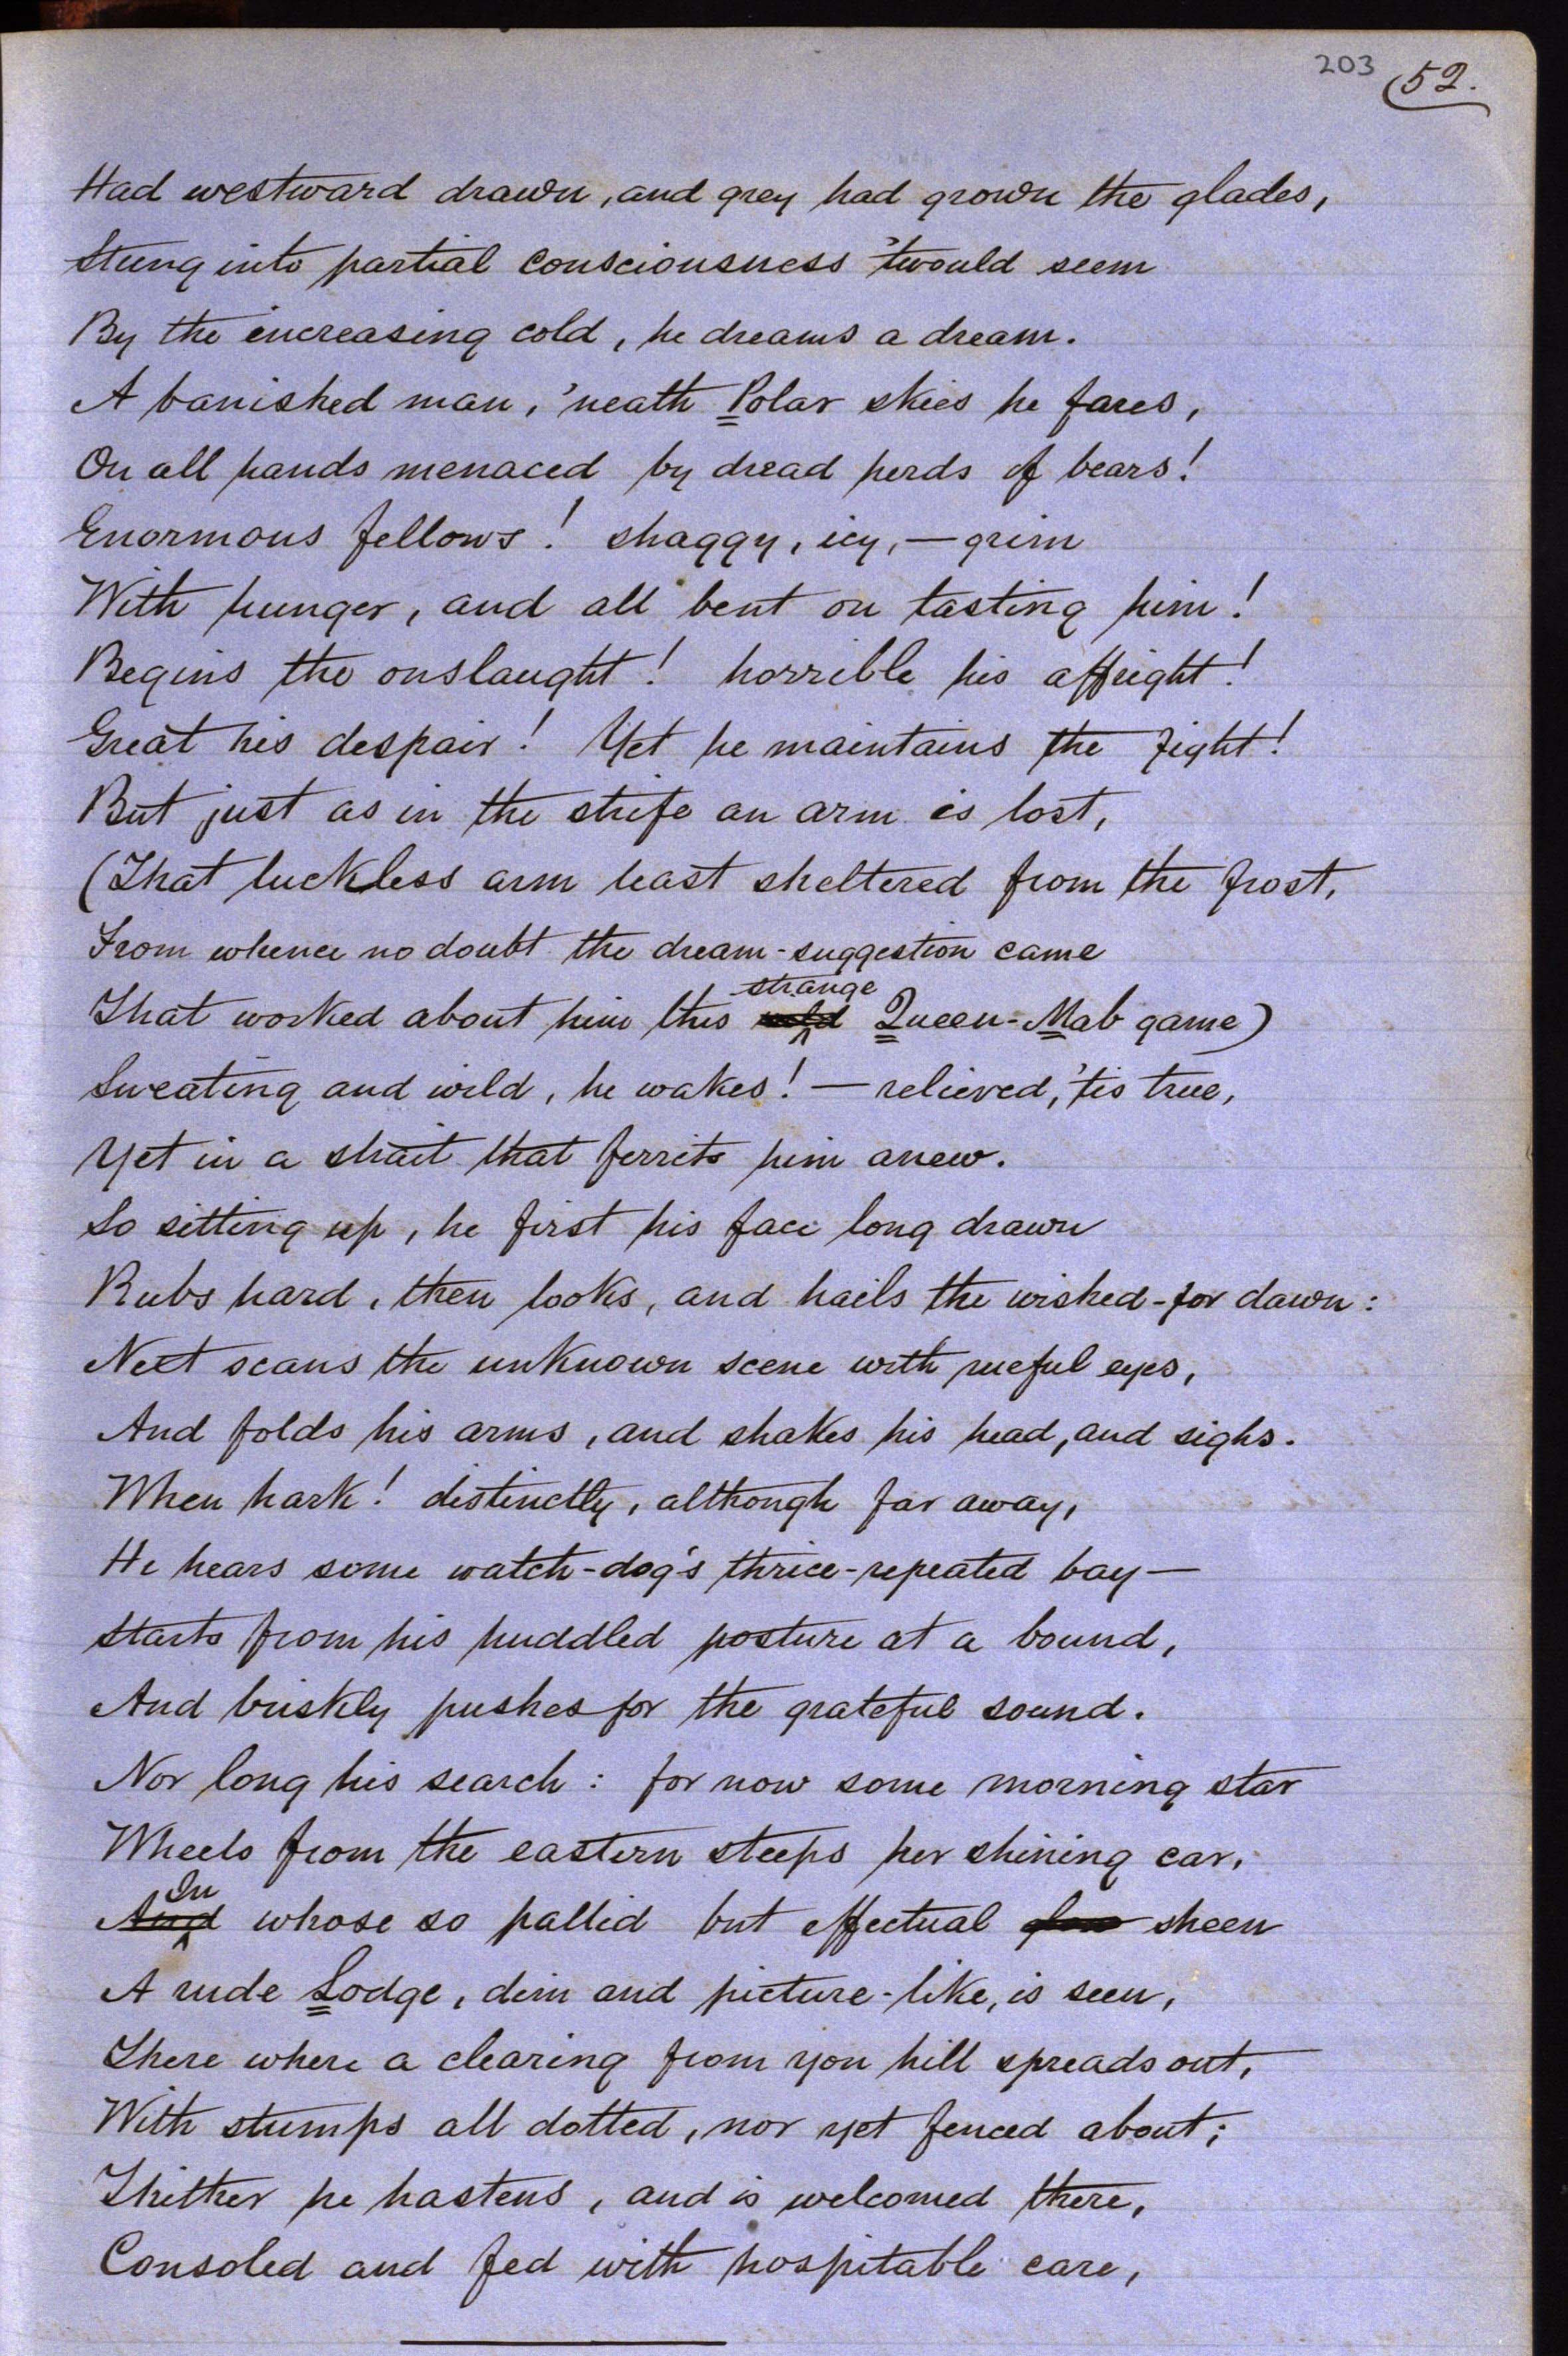 203 52.
Had westward drawn, and grey had grown the glades,
Stung into partial consciousness 'twould seem
By the increasing cold, he dreams a dream.
A banished man, 'neath Polar skies he fares,
On all hands menaced by dread herds of bears!
Enormous fellows! shaggy, icy, — grim
With hunger, and all bent on tasting him!
Begins the onslaught! horrible his affright!
Great his despair! Yet he maintains the fight!
But just as in the strife an arm is lost,
(That luckless arm least sheltered from the frost,
From whence no doubt the dream-suggestion came
strange
That worked about him this wild Queen-Mab game)
Sweating and wild, he wakes! — relieved, 'tis true,
Yet in a strait that ferrits him anew.
So sitting up, he first his face long drawn
Rubs hard, then looks, and hails the wished-for dawn:
Next scans the unknown scene with rueful eyes,
And folds his arms, and shakes his head, and sighs.
When hark! distinctly, although far away,
He hears some watch-dog's thrice-repeated bay—
Starts from his huddled posture at a bound,
And briskly pushes for the grateful sound.
Nor long his search: for now some morning star
Wheels from the eastern steeps her shining car,
In
And whose so pallid but effectual sheen
A rude Lodge, dim and picture-like, is seen,
There where a clearing from yon hill spreads out,
With stumps all dotted, nor yet fenced about;
Thither he hastens, and is welcomed there,
Consoled and fed with hospitable care,